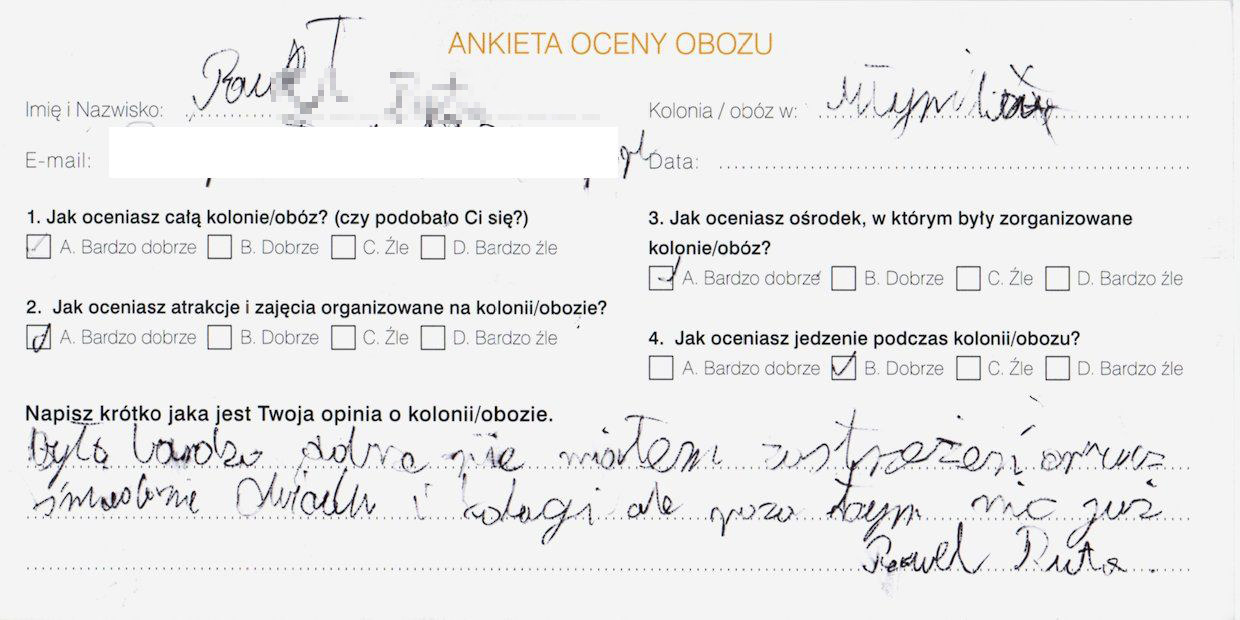 ANKIETA OCENY OBOZU
Imię i Nazwisko: Paweł
Kolonia / obóz w:
E-mail:
Data:
1. Jak oceniasz całą kolonie/obóz? (czy podobało Ci się?)
A. Bardzo dobrze B. Dobrze C. Źle D. Bardzo źle
2. Jak oceniasz atrakcje i zajęcia organizowane na kolonii/obozie?
A. Bardzo dobrze B. Dobrze C. Źle D. Bardzo źle
3. Jak oceniasz ośrodek, w którym były zorganizowane
kolonie/obóz?
A. Bardzo dobrze B. Dobrze C. Źle D. Bardzo źle
4. Jak oceniasz jedzenie podczas kolonii/obozu?
A. Bardzo dobrze B. Dobrze C. Źle D. Bardzo źle
Napisz krótko jaka jest Twoja opinia o kolonii/obozie.
było bardzo nie miałem zastrzeżeń
i ale poza tym nic już
Paweł Ruta.